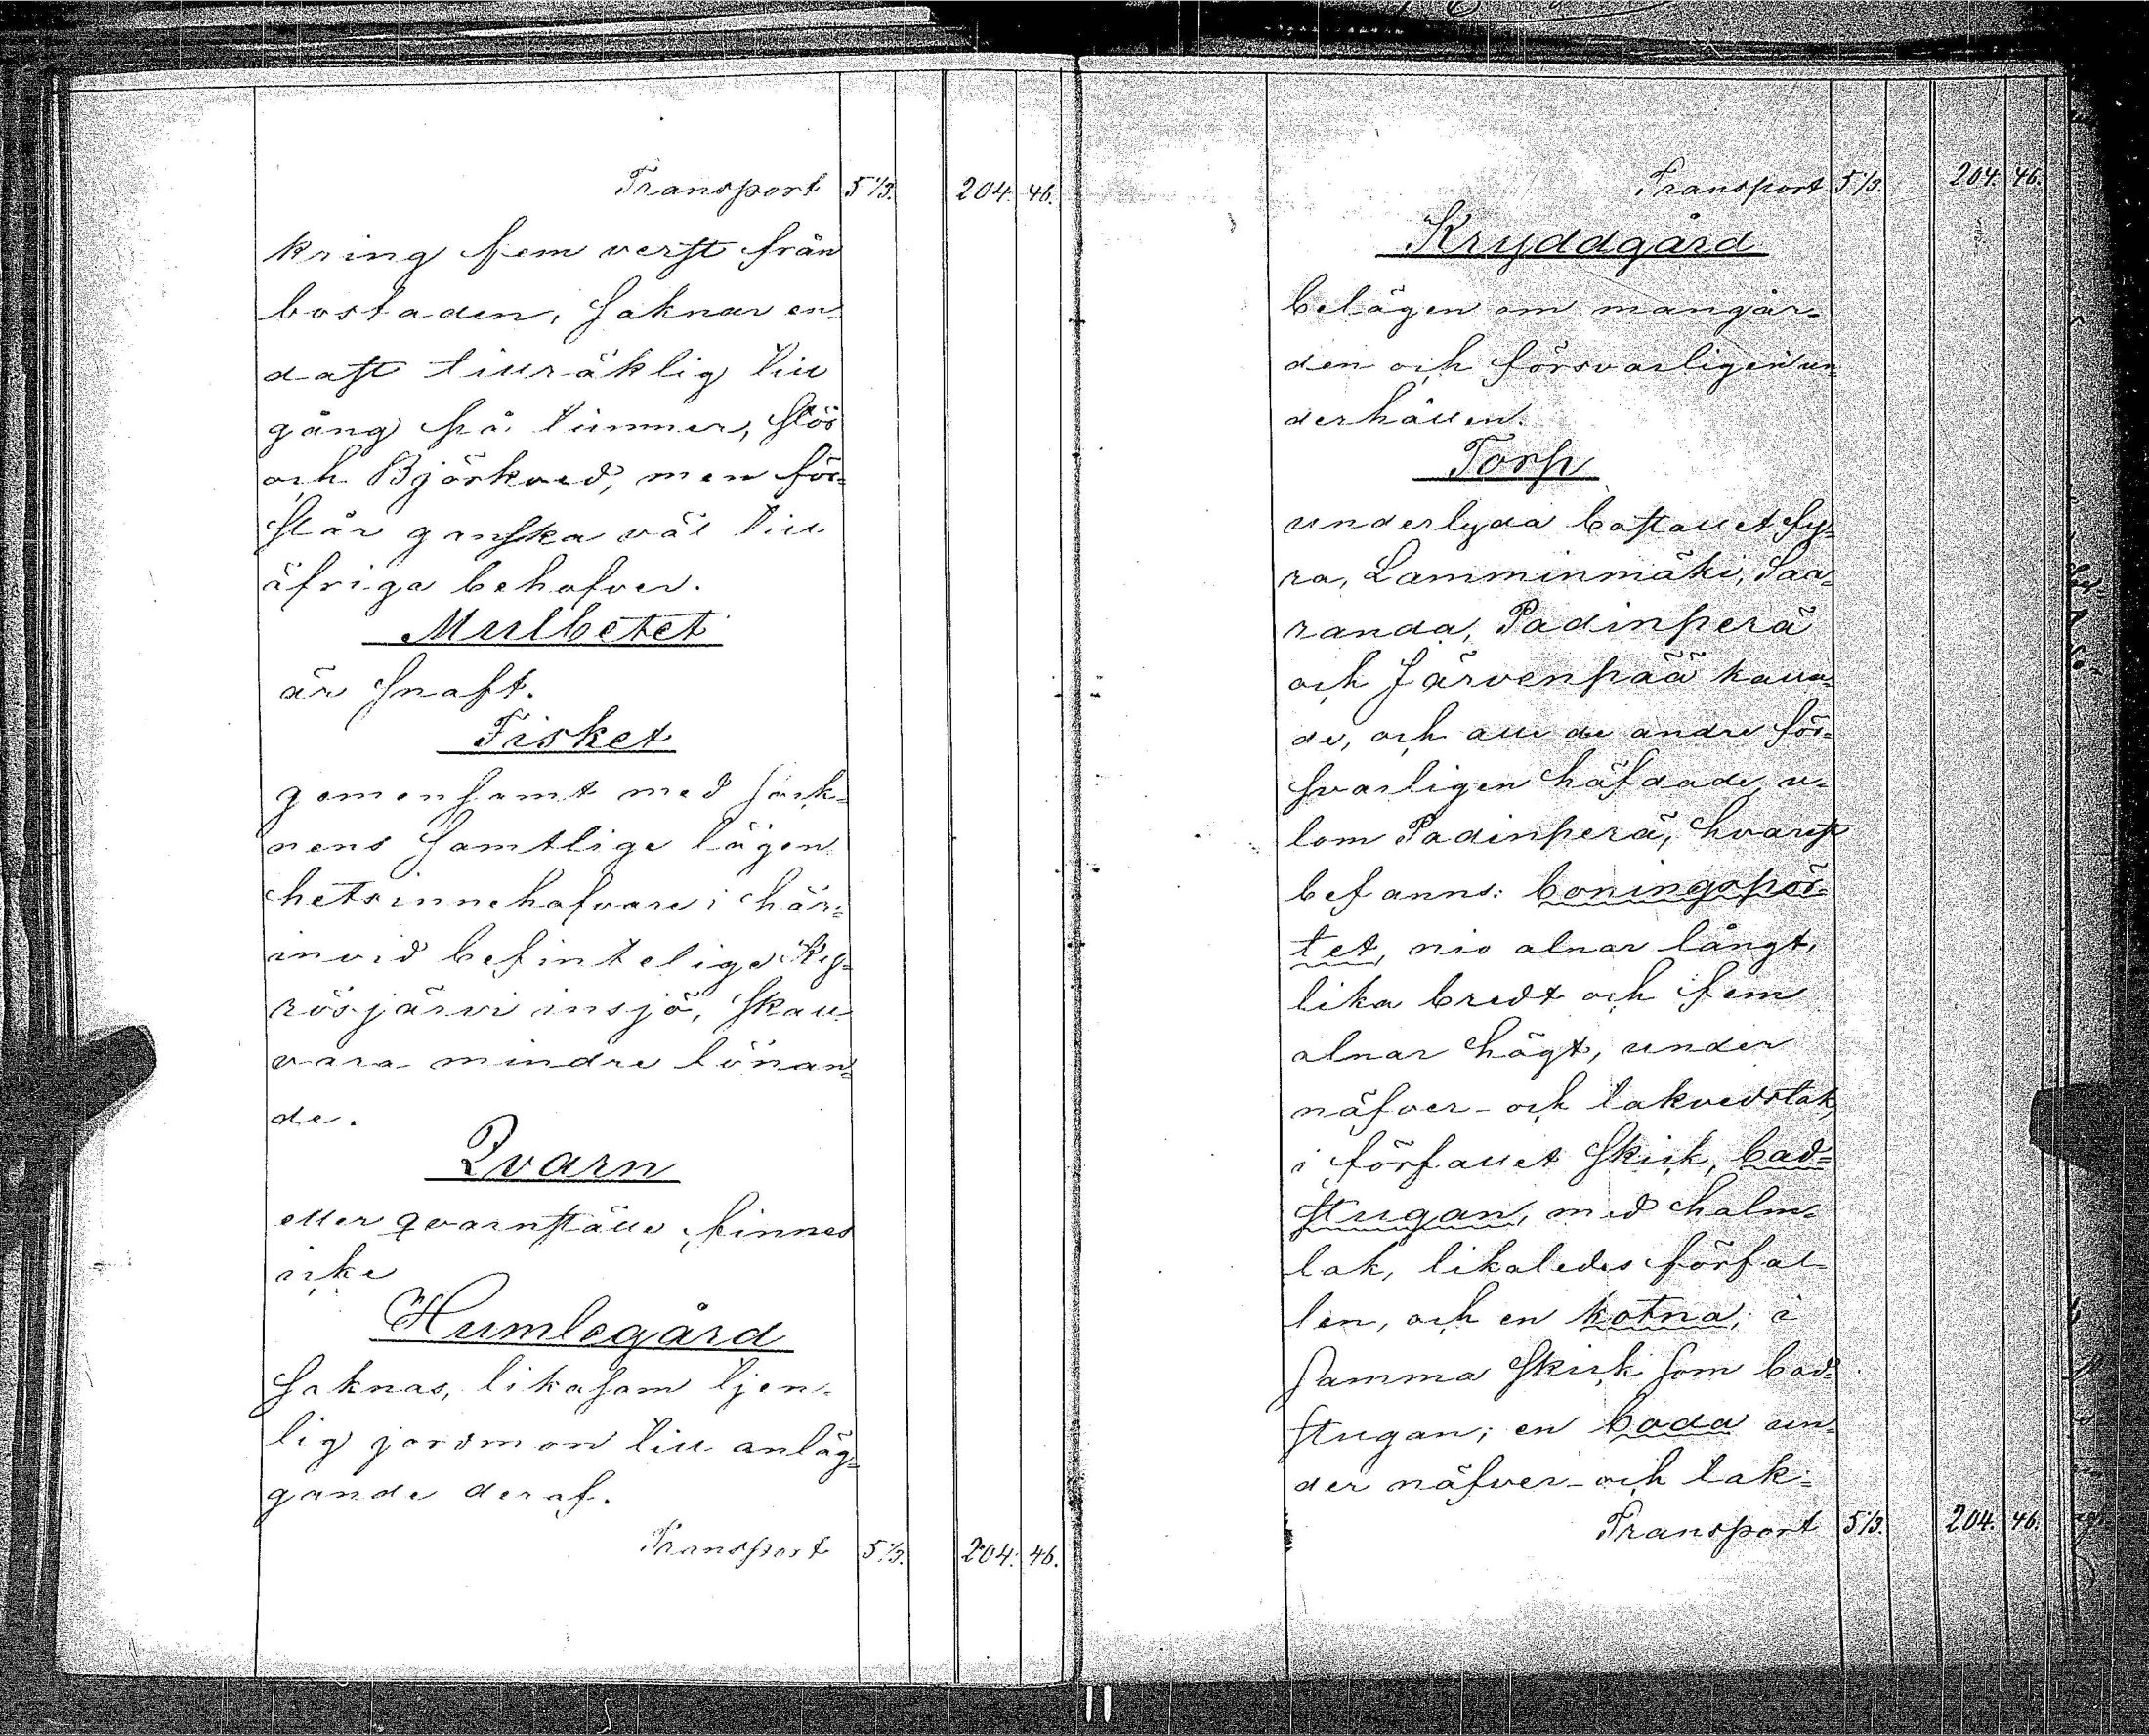 Transport 5 1/3. 204. 46.
kring fem verst från
bostaden, saknar en-
dast tillräklig till
gång på timmer, slös
och Björkved, men för-
slår ganska väl till
äfriga behofver.
Mulbetet
är snaft.
Fisket
gemensamt med sock-
nens samtlige lägen
hetsinnehafvare i här-
invid befintelige Ky-
rösjärvi insjö, skall
vara mindre lönan-
de.
Qvarn
eller qvarnställe finnes
icke
Humlegård
saknas, likasom tjen-
lig jordmon till anläg-
gande deraf.
Transport 5 1/3. 204. 46.
Transport 5 1/3. 204. 46.
Kryddgård
belägen om mangår-
den och försvarligen un-
derhållen.
Torp
underlyda bostället fy-
ra, Lamminmäki, Saa-
randa, Padinperä
och Järvenpää kalla-
de, och alle de andre för-
svarligen häfdade, u-
tom Padinperä, hvarest
befanns: boningspör-
tet, nio alnar långt,
lika bredt och fem
alnar högt, under
näfver- och takvedstak,
i förfallet skick, bad-
stugan, med halm-
tak, likaledes förfal-
len, och en kotna, i
samma skick som bad-
stugan; en boda un-
der näfver- och tak-
Transport 5 1/3. 204. 46.
11